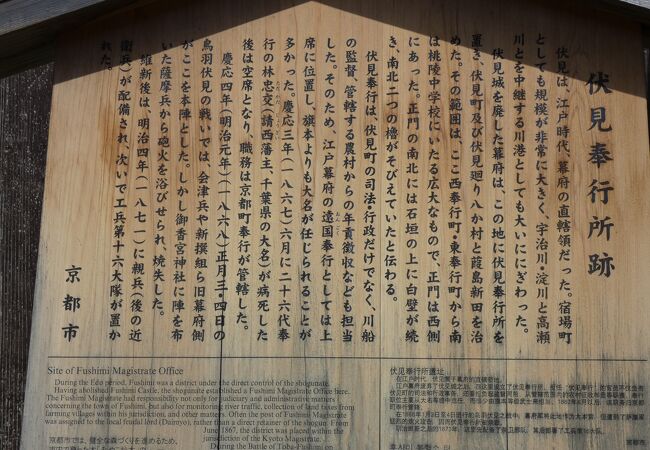 伏見奉行所跡
伏見は、江戸時代、幕府の直轄領だった。宿場町
としても規模が非常に大きく、宇治川・淀川と高瀬
川とを中継する川港としても大いににぎわった。
伏見城を廃した幕府は、この地に伏見奉行所を
置き、伏見町及び伏見廻り八か村と葭島新田を治
めた。その範囲は、ここ西奉行町・東奉行町から南
は桃陵中学校にいたる広大なもので、正門は西側
にあった。正門の南北には石垣の上に白壁が続
き、南北二つの櫓がそびえていたと伝わる。
伏見奉行は、伏見町の司法・行政だけでなく、川船
の監督、管轄する農村からの年貢徴収なども担当
した。そのため、江戸幕府の遠国奉行としては上
席に位置し、旗本よりも大名が任じられることが
多かった。慶応三年(一八六七)六月に二十六代奉
行の林忠交(請西藩主、千葉県の大名)が病死した
後は空席となり、職務は京都町奉行が管轄した。
慶応四年(明治元年)(一八六八)正月三・四日の
鳥羽伏見の戦いでは、会津兵や新撰組ら旧幕府側
がここを本陣とした。しかし御香宮神社に陣を布
いた薩摩兵から砲火を浴びせられ、焼失した。
維新後は、明治四年(一八七一)に親兵(後の近
衛兵)が配備され、次いで工兵第十六大隊が置か
れた。
京都市
Site of Fushimi Magistrate Office
During the Edo period, Fushimi was a district under the direct control of the shogunate.
Having abolished Fushimi Castle, the shogunate established a Fushimi Magistrate Office here.
The Fushimi Magistrate had responsibility not only for judiciary and administrative matters
concerning the town of Fushimi, but also for monitoring river traffic, collection of land taxes from
farming villages within his jurisdiction, and other matters. Often the post of Fushimi Magistrate
was assigned to the local feudal lord (Daimyo), rather than a direct retainer of the shogun. From
June 1867, the district was placed within the
jurisdiction of the Kyoto Magistrate.
During the Battle of Toba-Fushimi on
伏见奉行所遗址
京都市
京都市では、健全な森づくりを進めるため、